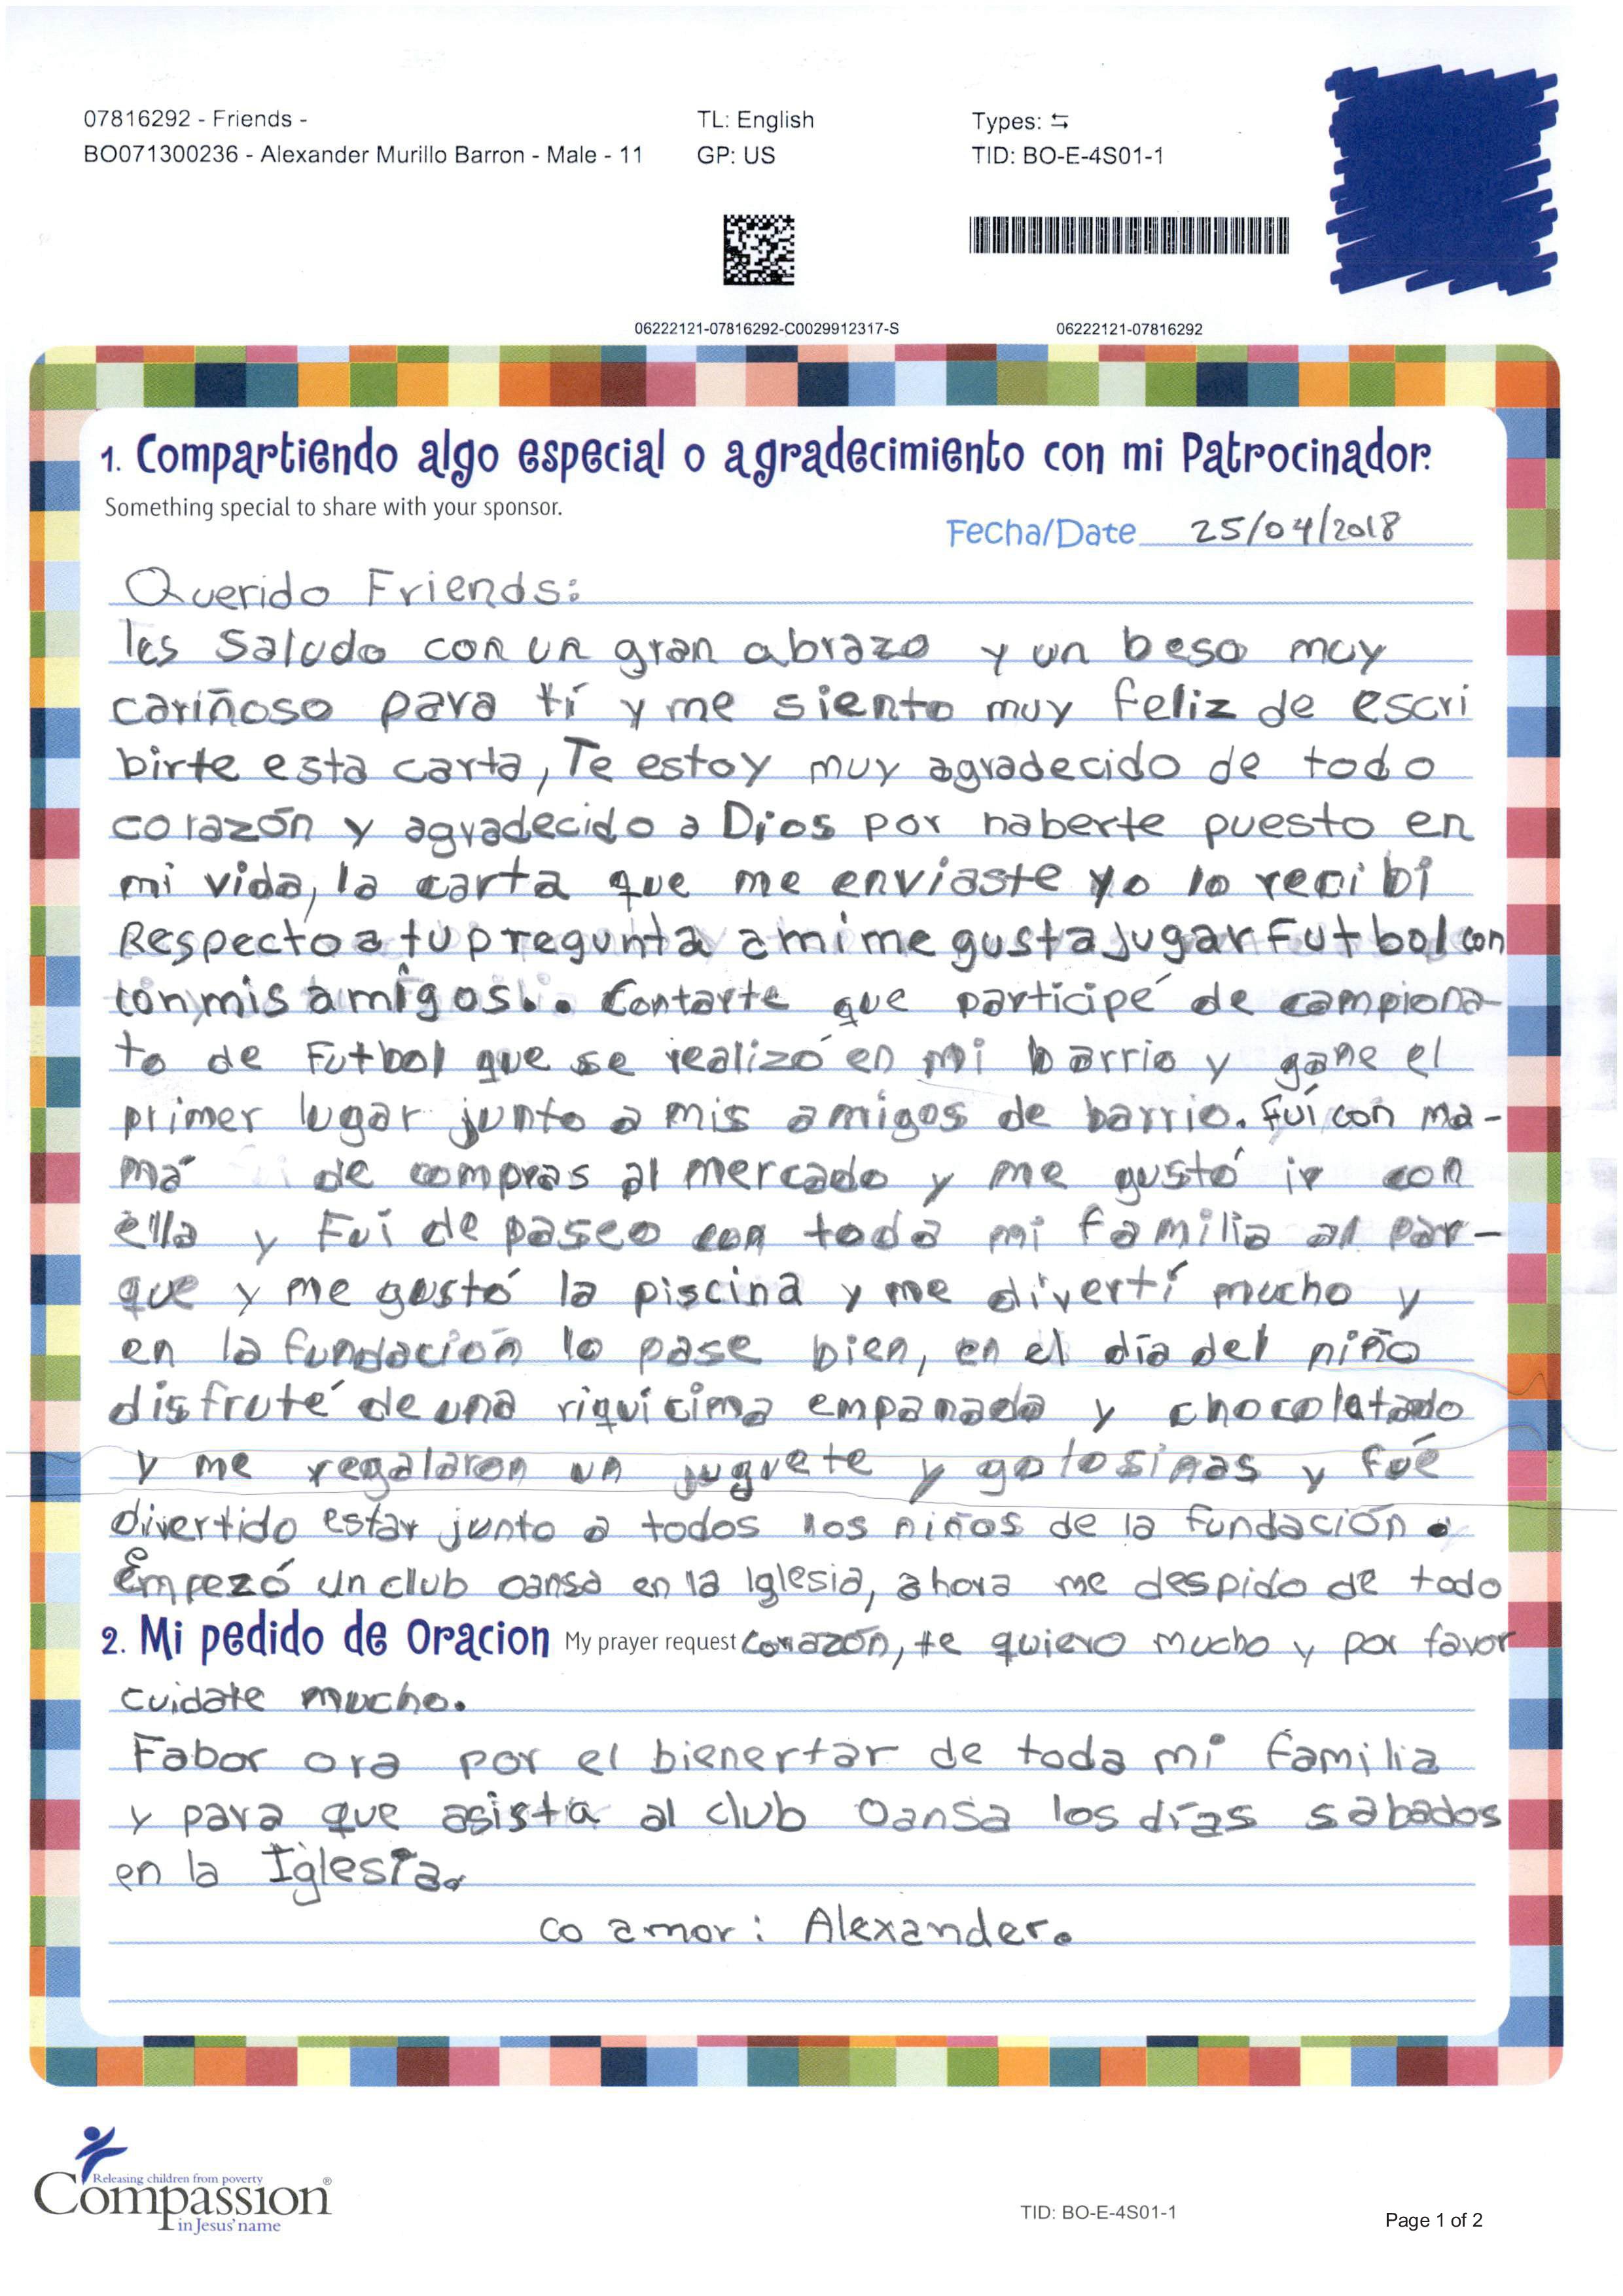 07816292 - Friends -
TL: English
Types: ⇆
BO071300236 - Alexander Murillo Barron - Male - 11
GP: US
TID: BO-E-4S01-1
06222121-07816292-C0029912317-S
06222121-07816292
1. Compartiendo algo especial o agradecimiento con mi Patrocinador.
Something special to share with your sponsor.
Fecha/Date 25/04/2018
Querido Friends:
les saludo con un gran abrazo y un beso muy
cariñoso para tí y me siento muy feliz de escri
birte esta carta, Te estoy muy agradecido de todo
corazón y agradecido a Dios por haberte puesto en
mi vida, la carta que me enviaste yo lo recibí
Respecto a tu pregunta a mi me gusta jugar futbol con
con mis amigos.. Contarte que participé de campiona-
to de Futbol que se realizó en mi barrio y gane el
primer lugar junto a mis amigos de barrio. fuí con ma-
má de compras al mercado y me gustó ir con
ella y Fui de paseo con toda mi familia al par-
que y me gustó la piscina y me divertí mucho y
en la fundación lo pase bien, en el día del niño
disfruté de una riquícima empanada y chocolatado
y me regalaron un juguete y golosinas y fué
divertido estar junto a todos los niños de la fundación.
Empezó un club oansa en la Iglesia, ahora me despido de todo
2. Mi pedido de Oracion My prayer request corazón, te quiero mucho y por favor
cuidate mucho.
Fabor ora por el bienertar de toda mi familia
y para que asista al club Oansa los días sabados
en la Iglesia.
co amor: Alexander.
Releasing children from poverty
Compassion®
in Jesus' name
TID: BO-E-4S01-1
Page 1 of 2